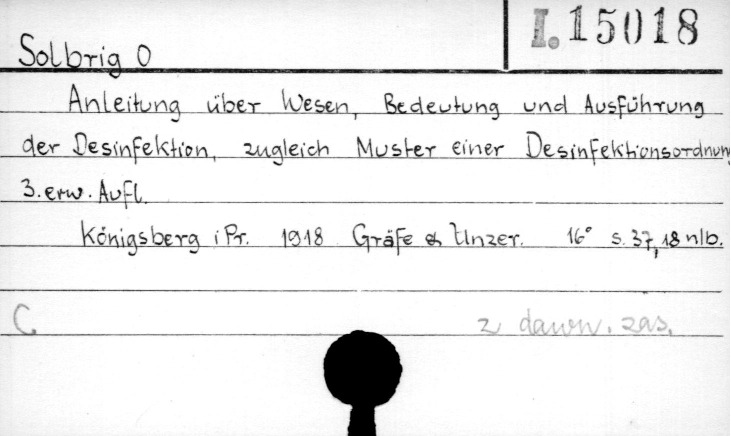 I. 15018
Solbrig O
Anleitung über Wesen, Bedeutung und Ausführung
der Desinfektion, zugleich Muster einer Desinfektionsordnung
3. erw. Aufl.
Königsberg i Pr. 1918 Gräfe & Unzer. 16° s. 37, 18 nlb.
C
z dawn. zas.